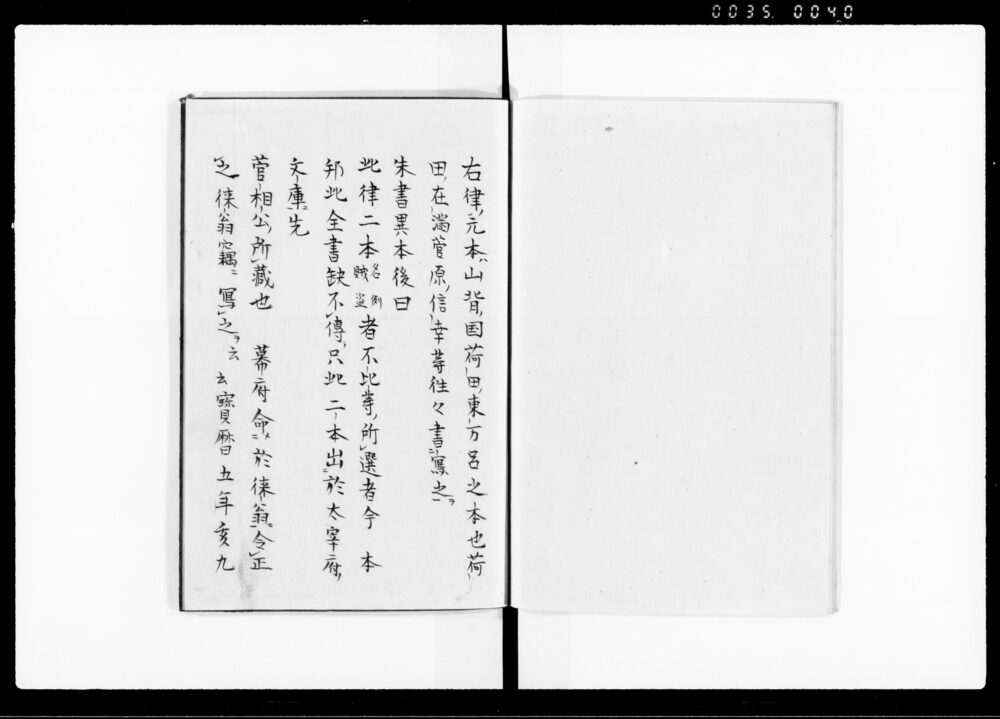 0035 0040
右律元本山背国荷田東万呂之本也荷
田在満菅原信幸等往々書写之ヲ
朱書異本後曰
此律二本名例賊盗者不比等所選者今 本
邦此全書缺不傳只此二本出於太宰府
文庫先
菅相公所蔵也 幕府命メ於徠翁令正
之徠翁竊ニ写之ヲ云 寶暦五年亥九